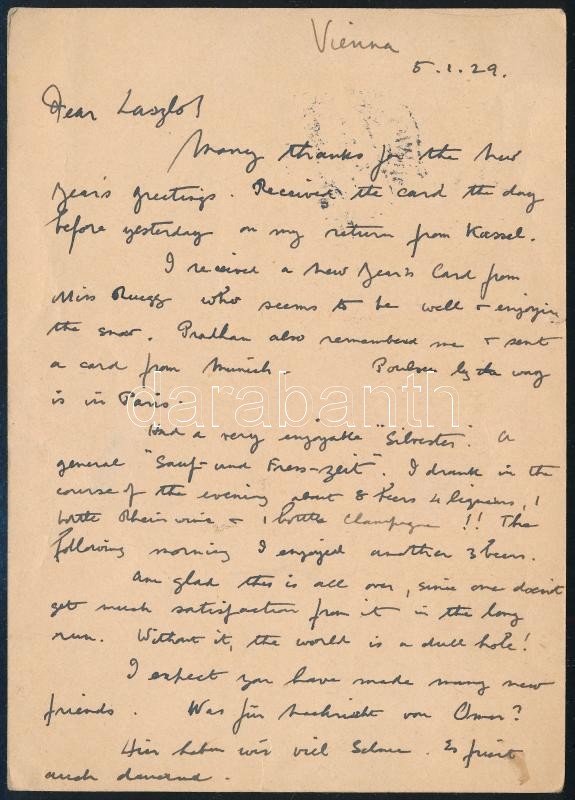 Vienna
5.1.29.
Dear Laszlo!
Many thanks for the New
Year's greetings. Received the card the day
before yesterday on my return from Kassel.
I received a New Year's Card from
Miss Ruegg who seems to be well + enjoying
the snow. Pradhan also remembered me + sent
a card from Munich. Poulsen by the way
is in Paris.
darabanth
Had a very enjoyable "Silvester". A
general "Sauf- und Fress-zeit". I drank in the
course of the evening about 8 beers 4 liqueurs, 1
bottle Rheinwine + 1 bottle Champagne !! The
following morning I enjoyed another 3 beers.
Am glad this is all over, since one doesn't
get much satisfaction from it in the long
run. Without it, the world is a dull hole!
I expect you have made many new
friends. Was für Nachricht von Omar?
Hier haben wir viel Schnee. Es friert
auch dauernd.